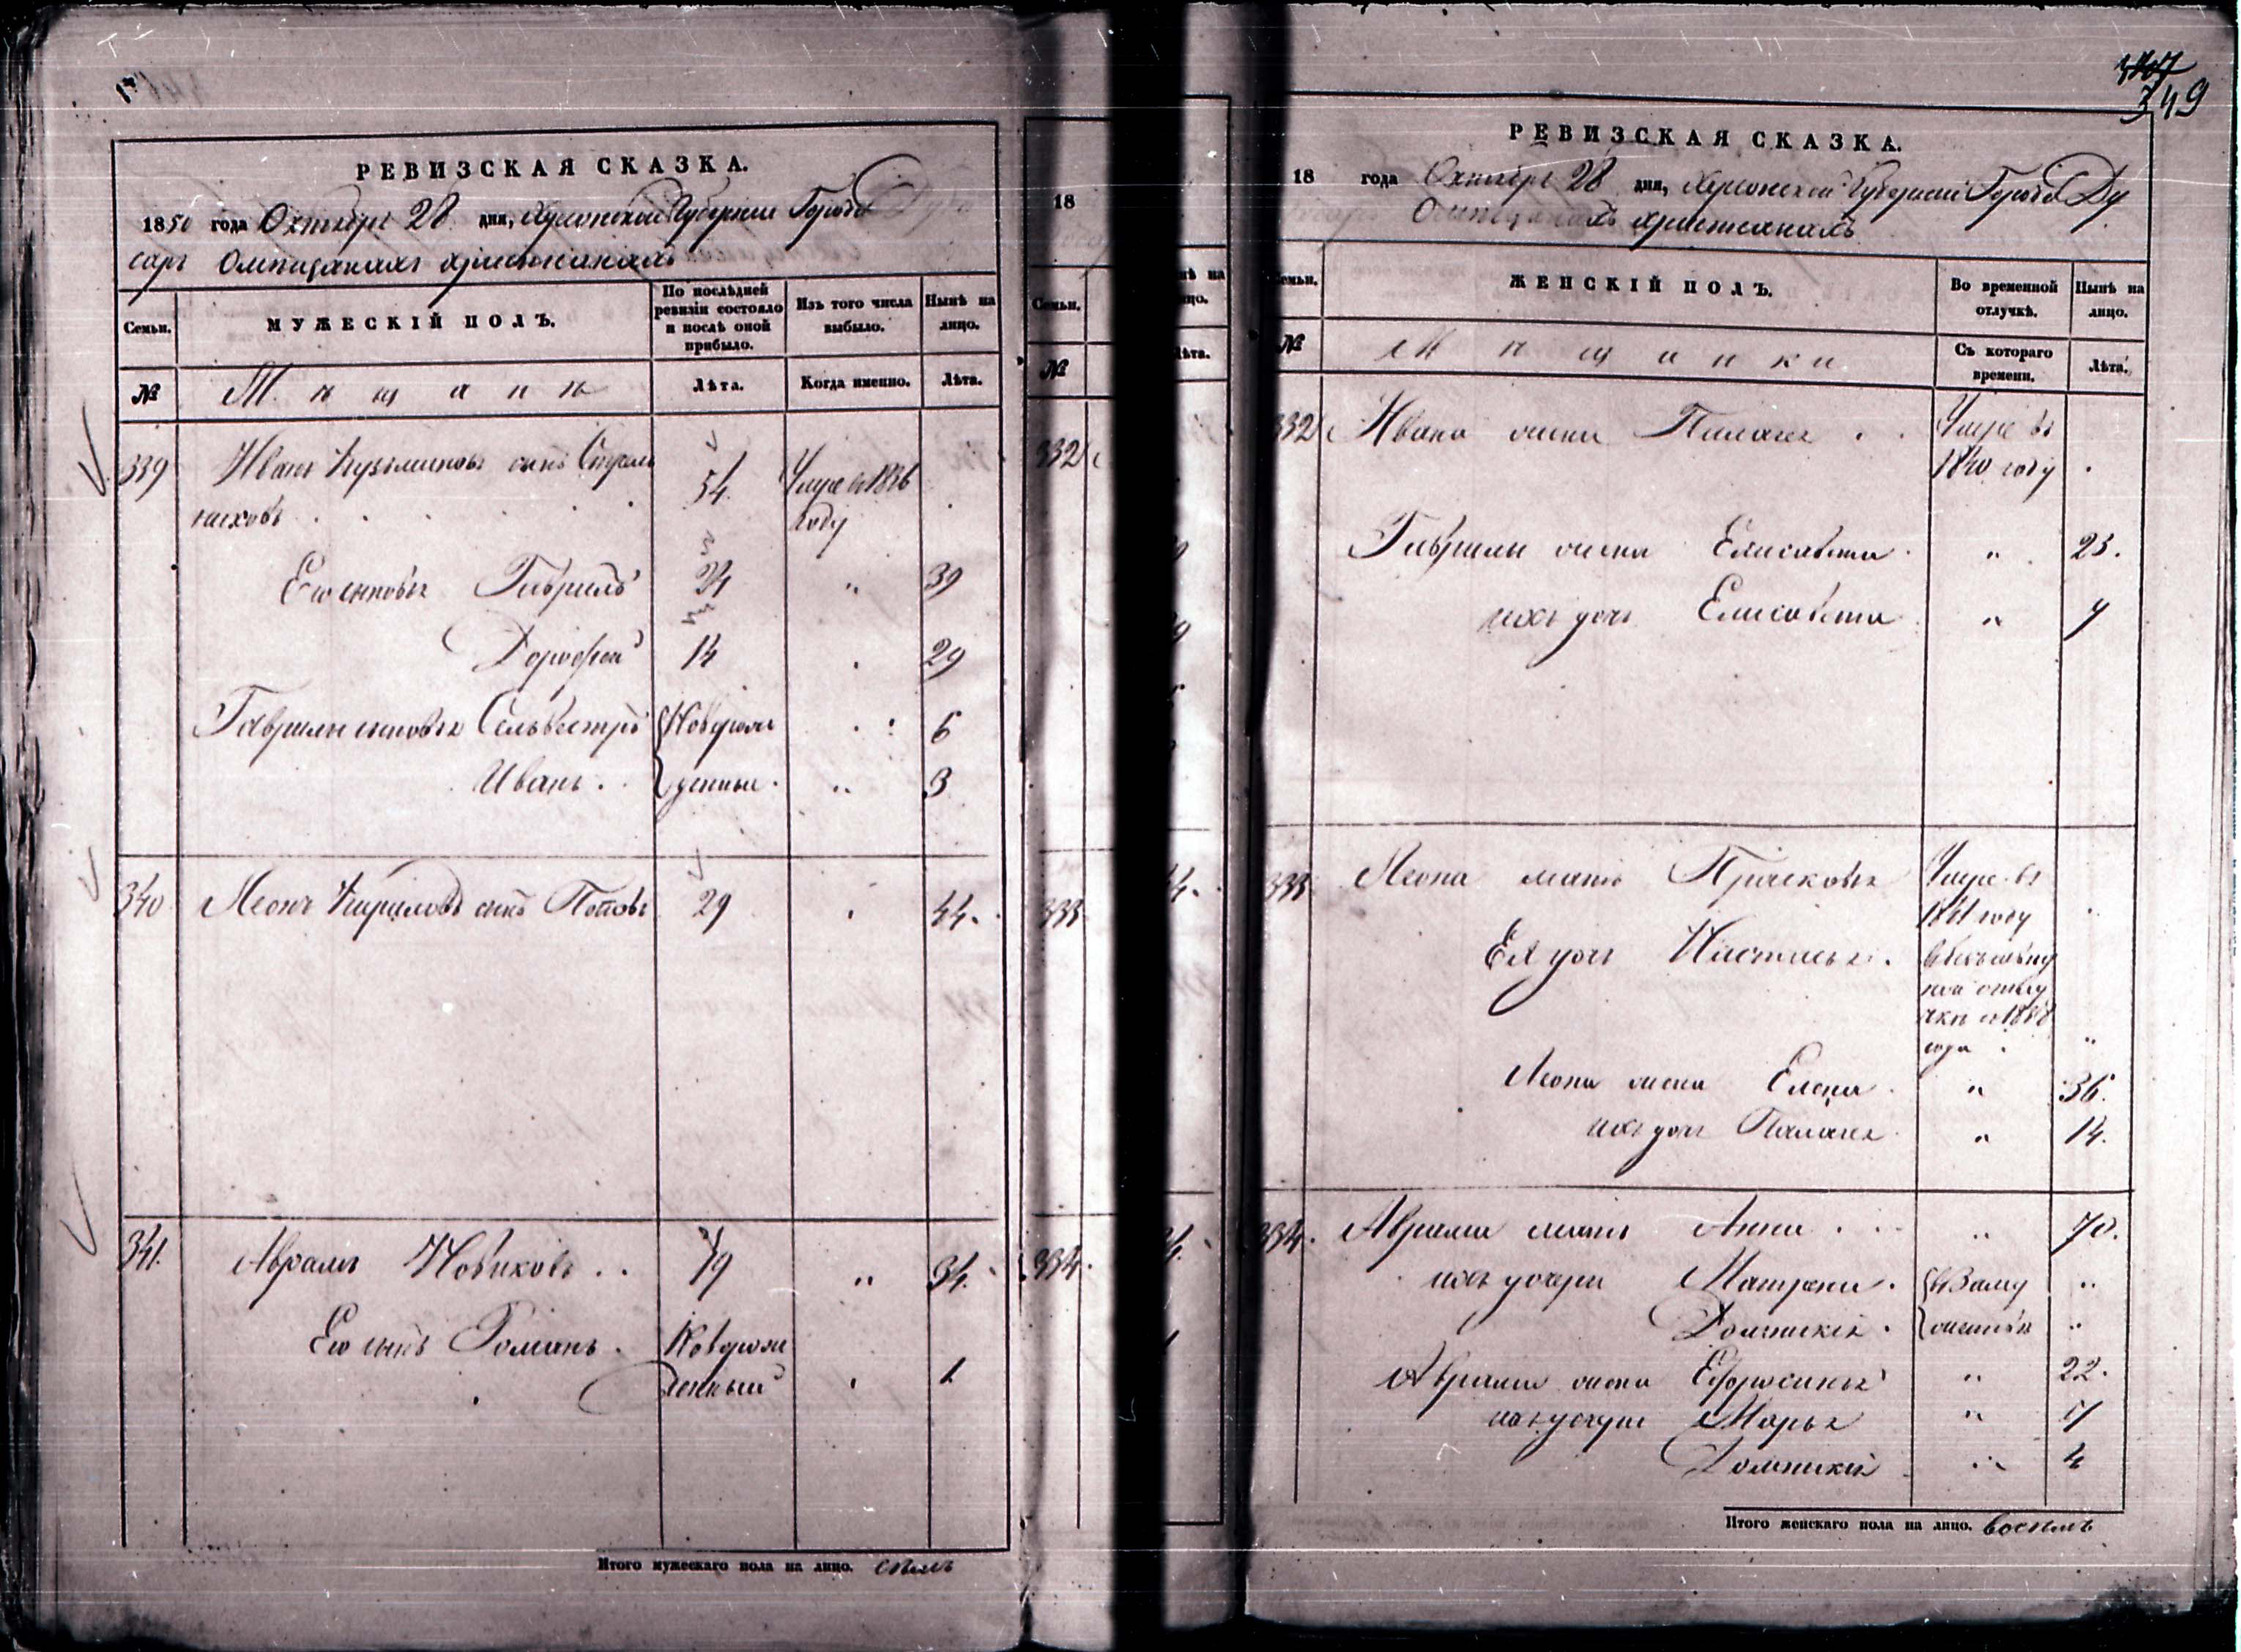 РЕВИЗСКАЯ СКАЗКА.
1850 года Октября 28 дня, Херсонской Губернии Города Ду
сарь О мѣщанахъ христіанахъ
Семьи.
МУЖЕСКІЙ ПОЛЪ.
По послѣдней ревизіи состояло и послѣ оной прибыло.
Изъ того числа выбыло.
Нынѣ на лицо.
№
Мѣщане
Лѣта.
Когда именно.
Лѣта.
339 Иванъ Кузьминовъ сынъ Стрель 54. Умре въ 1836
никовъ . . . . . году
Его сыновья Гаврилъ 24 " 39
Дорофей 14 . 29
Гаврилы сыновья Сельвестръ Новорож . : 6
Иванъ . . денные . " 3
340 Леонъ Кириловъ сынъ Поповъ 29 . 44.
341. Аврамъ Новиковъ . . 19 " 34.
Его сынъ Романъ . Новорож
денный . 1
Итого мужескаго пола на лицо. семь
18
нѣ на
цо.
Семьи.
лѣта.
№
332
333
334.
349
РЕВИЗСКАЯ СКАЗКА.
18 года Октября 28 дня, Херсонской Губерніи Города Ду
О мѣщанахъ христіанахъ
Семьи.
ЖЕНСКІЙ ПОЛЪ.
Во временной отлучкѣ.
Нынѣ на лицо.
№
Мѣщанки
Съ котораго времени.
Лѣта.
332 Ивана жена Пелагея . . Умре въ
1840 году .
Гаврилы жена Елисавета . " 25.
ихъ дочь Елисавета "
333 Леона мать Прасковья Умре въ
1841 году .
Ея дочь Настасья . въ безъизвѣст
ной отлу
чкѣ съ
года . "
Леона жена Елена . " 36.
ихъ дочь Палагея . " 14.
334. Аврама мать Анна . . . " 70.
ихъ дочери Матрена . въ Заму "
Домникія . жествѣ "
Аврама жена Ефросинья " 22.
ихъ дочери Марья "
Домникія " 4
Итого женскаго пола на лицо. восемь